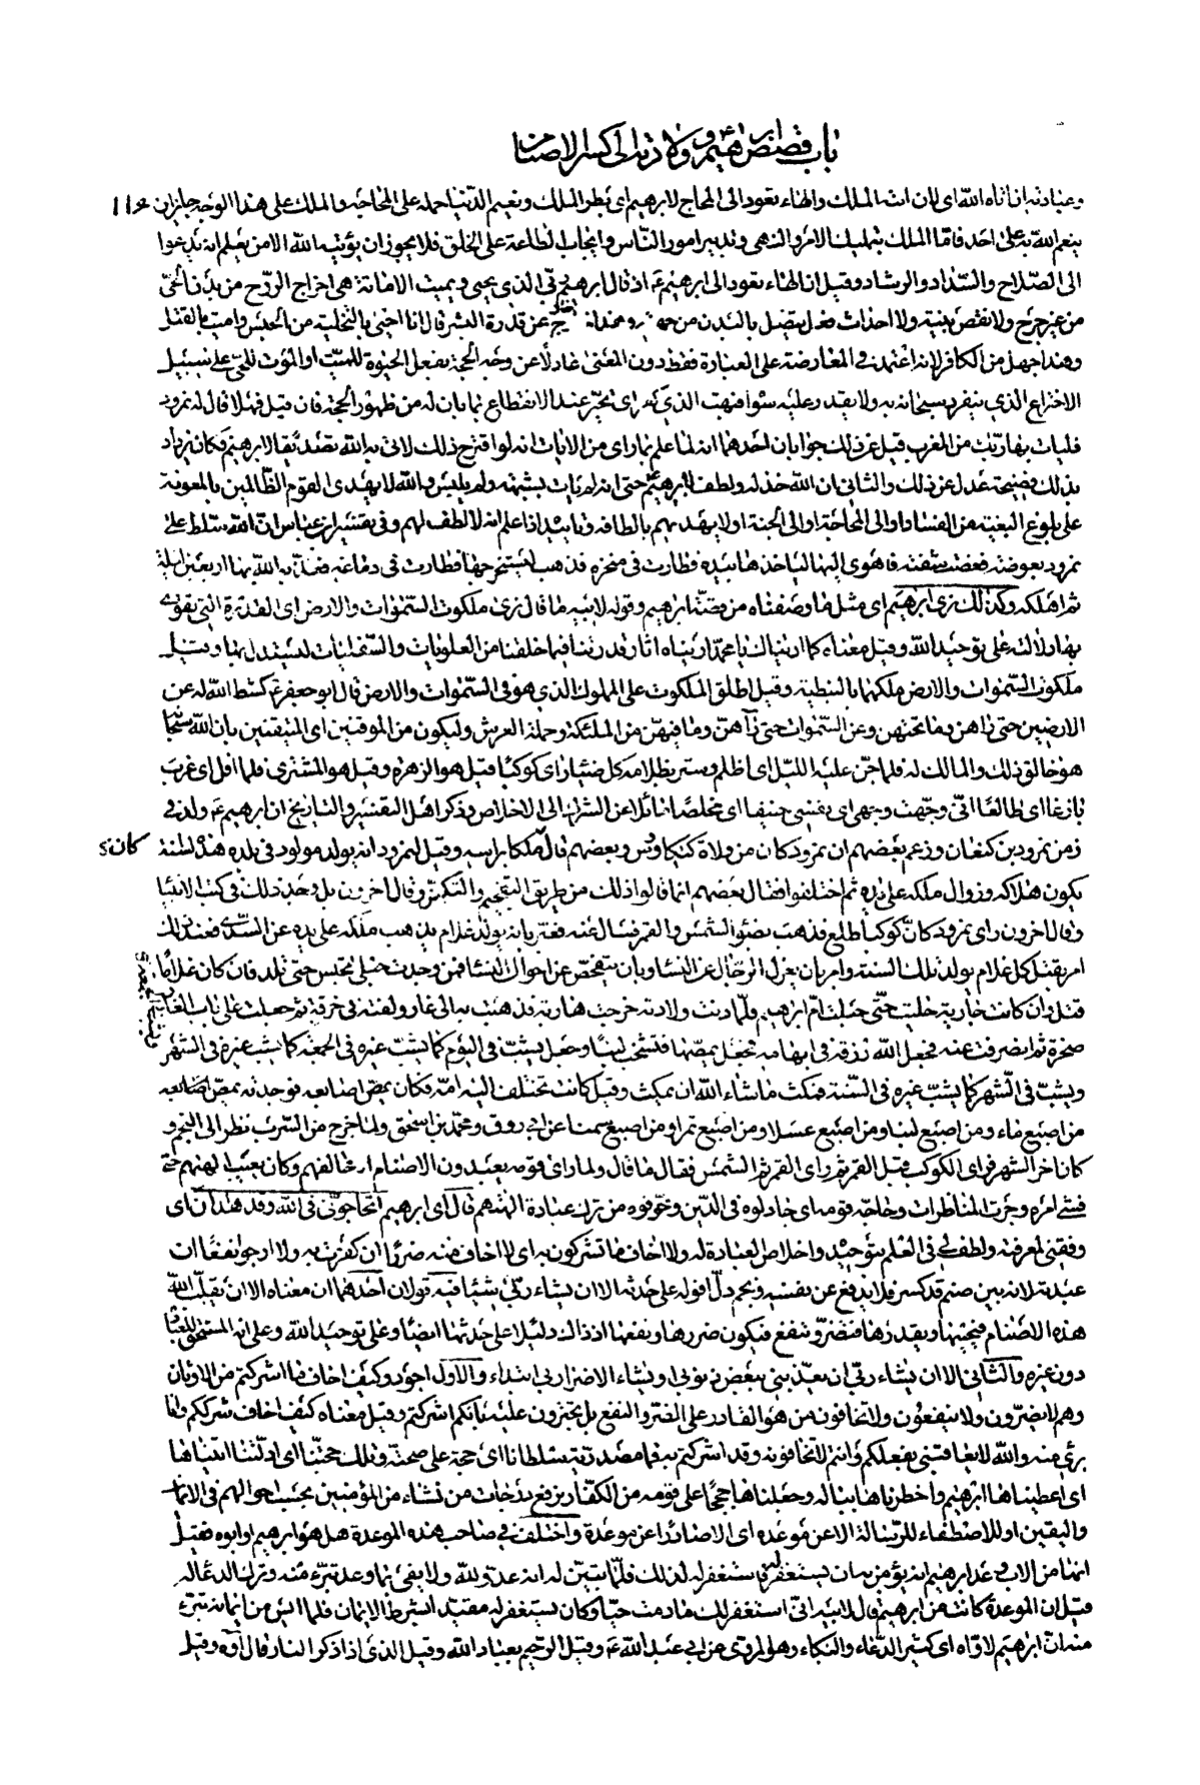 باب قصص ابرهيم ع وولادته الى كسر الاصنام
وعبادته ان اتاه الله اى لان اتاه الملك والهاء تعود الى المحاج لابرهيم اى بطر الملك ونعيم الدنيا حمله على المحاجة والملك على هذا الوجه جايز ان
ينعم الله به على احد فاما الملك بتمليك الامر والنهى وتدبير امور الناس وايجاب الطاعة على الخلق فلا يجوز ان يؤتيه الله الا من يعلم انه يدعوا
الى الصلاح والسداد والرشاد وقيل ان الهاء تعود الى ابرهيم ع اذ قال ابرهيم ربى الذى يحيى ويميت الاماتة هى اخراج الروح من بدن الحى
من غير جرح ولا نقص بنية ولا احداث فعل يتصل بالبدن من جهة وهذا خارج عن قدرة البشر قال انا احيى بالتخلية من الحبس واميت بالقتل
وهذا جهل من الكافر لانه اعتمد فى المعارضة على العبارة فقط دون المعنى عادلا عن وجه الحجة بفعل الحيوة للميت او الموت للحى على سبيل
الاختراع الذى ينفرد سبحانه به ولا يقدر عليه سواه فبهت الذى كفر اى تحير عند الانقطاع بما بان له من ظهور الحجة فان قيل فهلا قال له نمرود
فليات بها ربك من المغرب قيل عن ذلك جوابان احدهما انه لما علم بما راى من الايات انه لو اقترح ذلك لاتى به الله تصديقا لابرهيم فكان يزداد
بذلك فضيحة عدل عن ذلك والثانى ان الله خذله ولطف لابرهيم ع حتى انه لم يات بشبهة ولم يلبس والله لا يهدى القوم الظالمين بالمعونة
على بلوغ البغية من الفساد او الى المحاجة او الى الجنة او لا يهديهم بالطافه وتاييده اذا علم انه لا لطف لهم وفى تفسير ابن عباس ان الله سلط على
نمرود بعوضة فعضت شفته فاهوى اليها لياخذها بيده فطارت فى منخره فذهب ليستخرجها فطارت فى دماغه فعذبه الله بها اربعين ليلة
ثم اهلكه وكذلك نرى ابرهيم اى مثل ما وصفناه من قصة ابرهيم وقوله لابيه ما قال نرى ملكوت السموات والارض اى القدرة التى تقوى
بها دلالته على توحيد الله وقيل معناه كما اريناك يا محمد اريناه اثار قدرتنا فيما خلقنا من العلويات والسفليات ليستدل بها وقيل
ملكوت السموات والارض ملكهما بالنبطية وقيل اطلق الملكوت على المملوك الذى هو فى السموات والارض قال ابو جعفر ع كشط الله له عن
الارضين حتى راهن وما تحتهن وعن السموات حتى راهن وما فيهن من الملئكة وحملة العرش وليكون من الموقنين اى المتيقنين بان الله سبحانه
هو خالق ذلك والمالك له فلما جن عليه الليل اى اظلم وستر بظلامه كل ضياء راى كوكبا قيل هو الزهرة وقيل هو المشترى فلما افل اى غرب
بازغا اى طالعا انى وجهت وجهى اى نفسى حنيفا اى مخلصا مائلا عن الشرك الى الاخلاص وذكر اهل التفسير والتاريخ ان ابرهيم ع ولد فى
زمن نمرود بن كنعان وزعم بعضهم ان نمرود كان من ولاة كيكاوس وبعضهم قال ملكا براسه وقيل لنمرود انه يولد مولود فى بلده هذه السنة
كان
يكون هلاكه وزوال ملكه على يده ثم اختلفوا فقال بعضهم انما قالوا ذلك من طريق التنجيم والتكهن وقال اخرون بل وجد ذلك فى كتب الانبياء
وقال اخرون راى نمرود كان كوكبا طلع فذهب بضوء الشمس والقمر فسال عنه فعبر بانه يولد غلام يذهب ملكه على يده عن السدى فعند ذلك
امر بقتل كل غلام يولد تلك السنة وامر بان يعزل الرجال عن النساء وبان يتفحص عن احوال النساء فمن وجدت حبلى تحبس حتى تلد فان كان غلاما
قتل وان كانت جارية خليت حتى حبلت ام ابرهيم فلما دنت ولادته خرجت هاربة فذهبت به الى غار ولفته فى خرقة ثم جعلت على باب الغار
صخرة ثم انصرفت عنه فجعل الله رزقه فى ابهامه فجعل يمصها فتشخب لبنا وجعل يشب فى اليوم كما يشب غيره فى الجمعة كما يشب غيره فى الشهر
ويشب فى الشهر كما يشب غيره فى السنة فمكث ما شاء الله ان يمكث وقيل كانت تختلف اليه امه فكان يمص اصابعه فوجدته يمص اصابعه
من اصبع ماء ومن اصبع لبنا ومن اصبع عسلا ومن اصبع تمرا ومن اصبع سمنا عن ابى روق ومحمد بن اسحق ولما خرج من السرب نظر الى النجم و
كان اخر الشهر فراى الكوكب قبل القمر ثم راى القمر ثم الشمس فقال ما قال ولما راى قومه يعبدون الاصنام خالفهم وكان يعيب الهتهم حتى
فشى امره وجرت المناظرات وحاجه قومه اى جادلوه فى الدين وخوفوه من ترك عبادة الهتهم قال اى ابرهيم اتحاجونى فى الله وقد هدان اى
وفقنى لمعرفته ولطف لى فى العلم بتوحيده واخلاص العبادة له ولا اخاف ما تشركون به اى لا اخاف منه ضررا ان كفرت به ولا ارجو نفعا ان
عبدته لانه بين صنم قد كسر فلا يدفع عن نفسه ونجم دل افوله على حدثه الا ان يشاء ربى شيئا فيه قولان احدهما ان معناه الا ان يقلب الله
هذه الاصنام فيحييها ويقدرها فتضر وتنفع فيكون ضررها ونفعها اذ ذاك دليلا على حدثها ايضا وعلى توحيد الله وعلى انه المستحق للعبادة
دون غيره والثانى الا ان يشاء ربى ان يعذبنى ببعض ذنوبى او يشاء الاضرار بى ابتداء والاول اجود وكيف اخاف ما اشركتم من الاوثان
وهم لا يضرون ولا ينفعون ولا تخافون من هو القادر على الضر والنفع بل تجترون عليه بانكم اشركتم وقيل معناه كيف اخاف شرككم وانا
برئ منه والله لا يعاقبنى بفعلكم وانتم لا تخافونه وقد اشركتم به فما مصدرية سلطانا اى حجة على صحته وتلك حجتنا اى ادلتنا اتيناها
اى اعطيناها ابرهيم واخطرناها بباله وجعلناها حججا على قومه من الكفار نرفع درجات من نشاء من المؤمنين بحسب احوالهم فى الايمان
واليقين او للاصطفاء للرسالة الا عن موعدة اى الا صادرا عن موعدة واختلف فى صاحب هذه الموعدة هل هو ابرهيم او ابوه فقيل
انها من الاب وعد ابرهيم انه يؤمن به ان يستغفر له فاستغفر له لذلك فلما تبين له انه عدو لله ولا يفى بما وعد تبرء منه وترك الدعاء له
قيل ان الموعدة كانت من ابرهيم قال لابيه انى استغفر لك ما دمت حيا وكان يستغفر له مقيدا بشرط الايمان فلما ايس من ايمانه تبرء
منه ان ابرهيم لاواه اى كثير الدعاء والبكاء وهو المروى عن ابى عبد الله ع وقيل الرحيم بعباد الله وقيل الذى اذا ذكر النار قال اوه وقيل